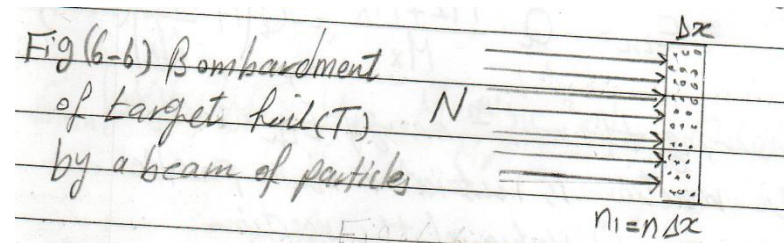 Δx
Fig (6-6) Bombardment
of target foil (T)
N
by a beam of particles
n1 = nΔx